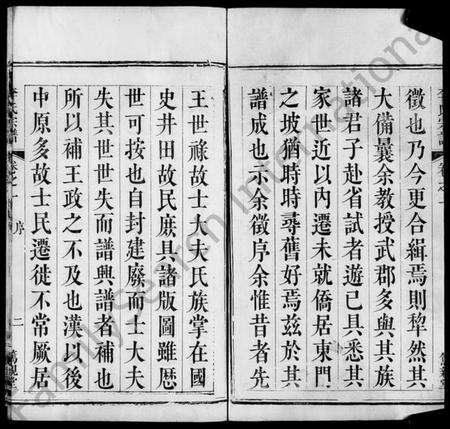 徵也乃今更合緝焉則犂然其
大備曩余教授武郡多與其族
諸君子赴省試者遊已具悉其
家世近以內遷未就僑居東門
之坡猶時時尋舊好焉兹於其
譜成也示余徵序余惟昔者先
王世祿故士大夫氏族掌在國
史井田故民庶具諸版圖雖歷
世可按也自封建廢而士大夫
失其世世失而譜興譜者補也
所以補王政之不及也漢以後
中原多故士民遷徙不常厥居
氏宗譜
卷之一
序
二
FamilySearch International